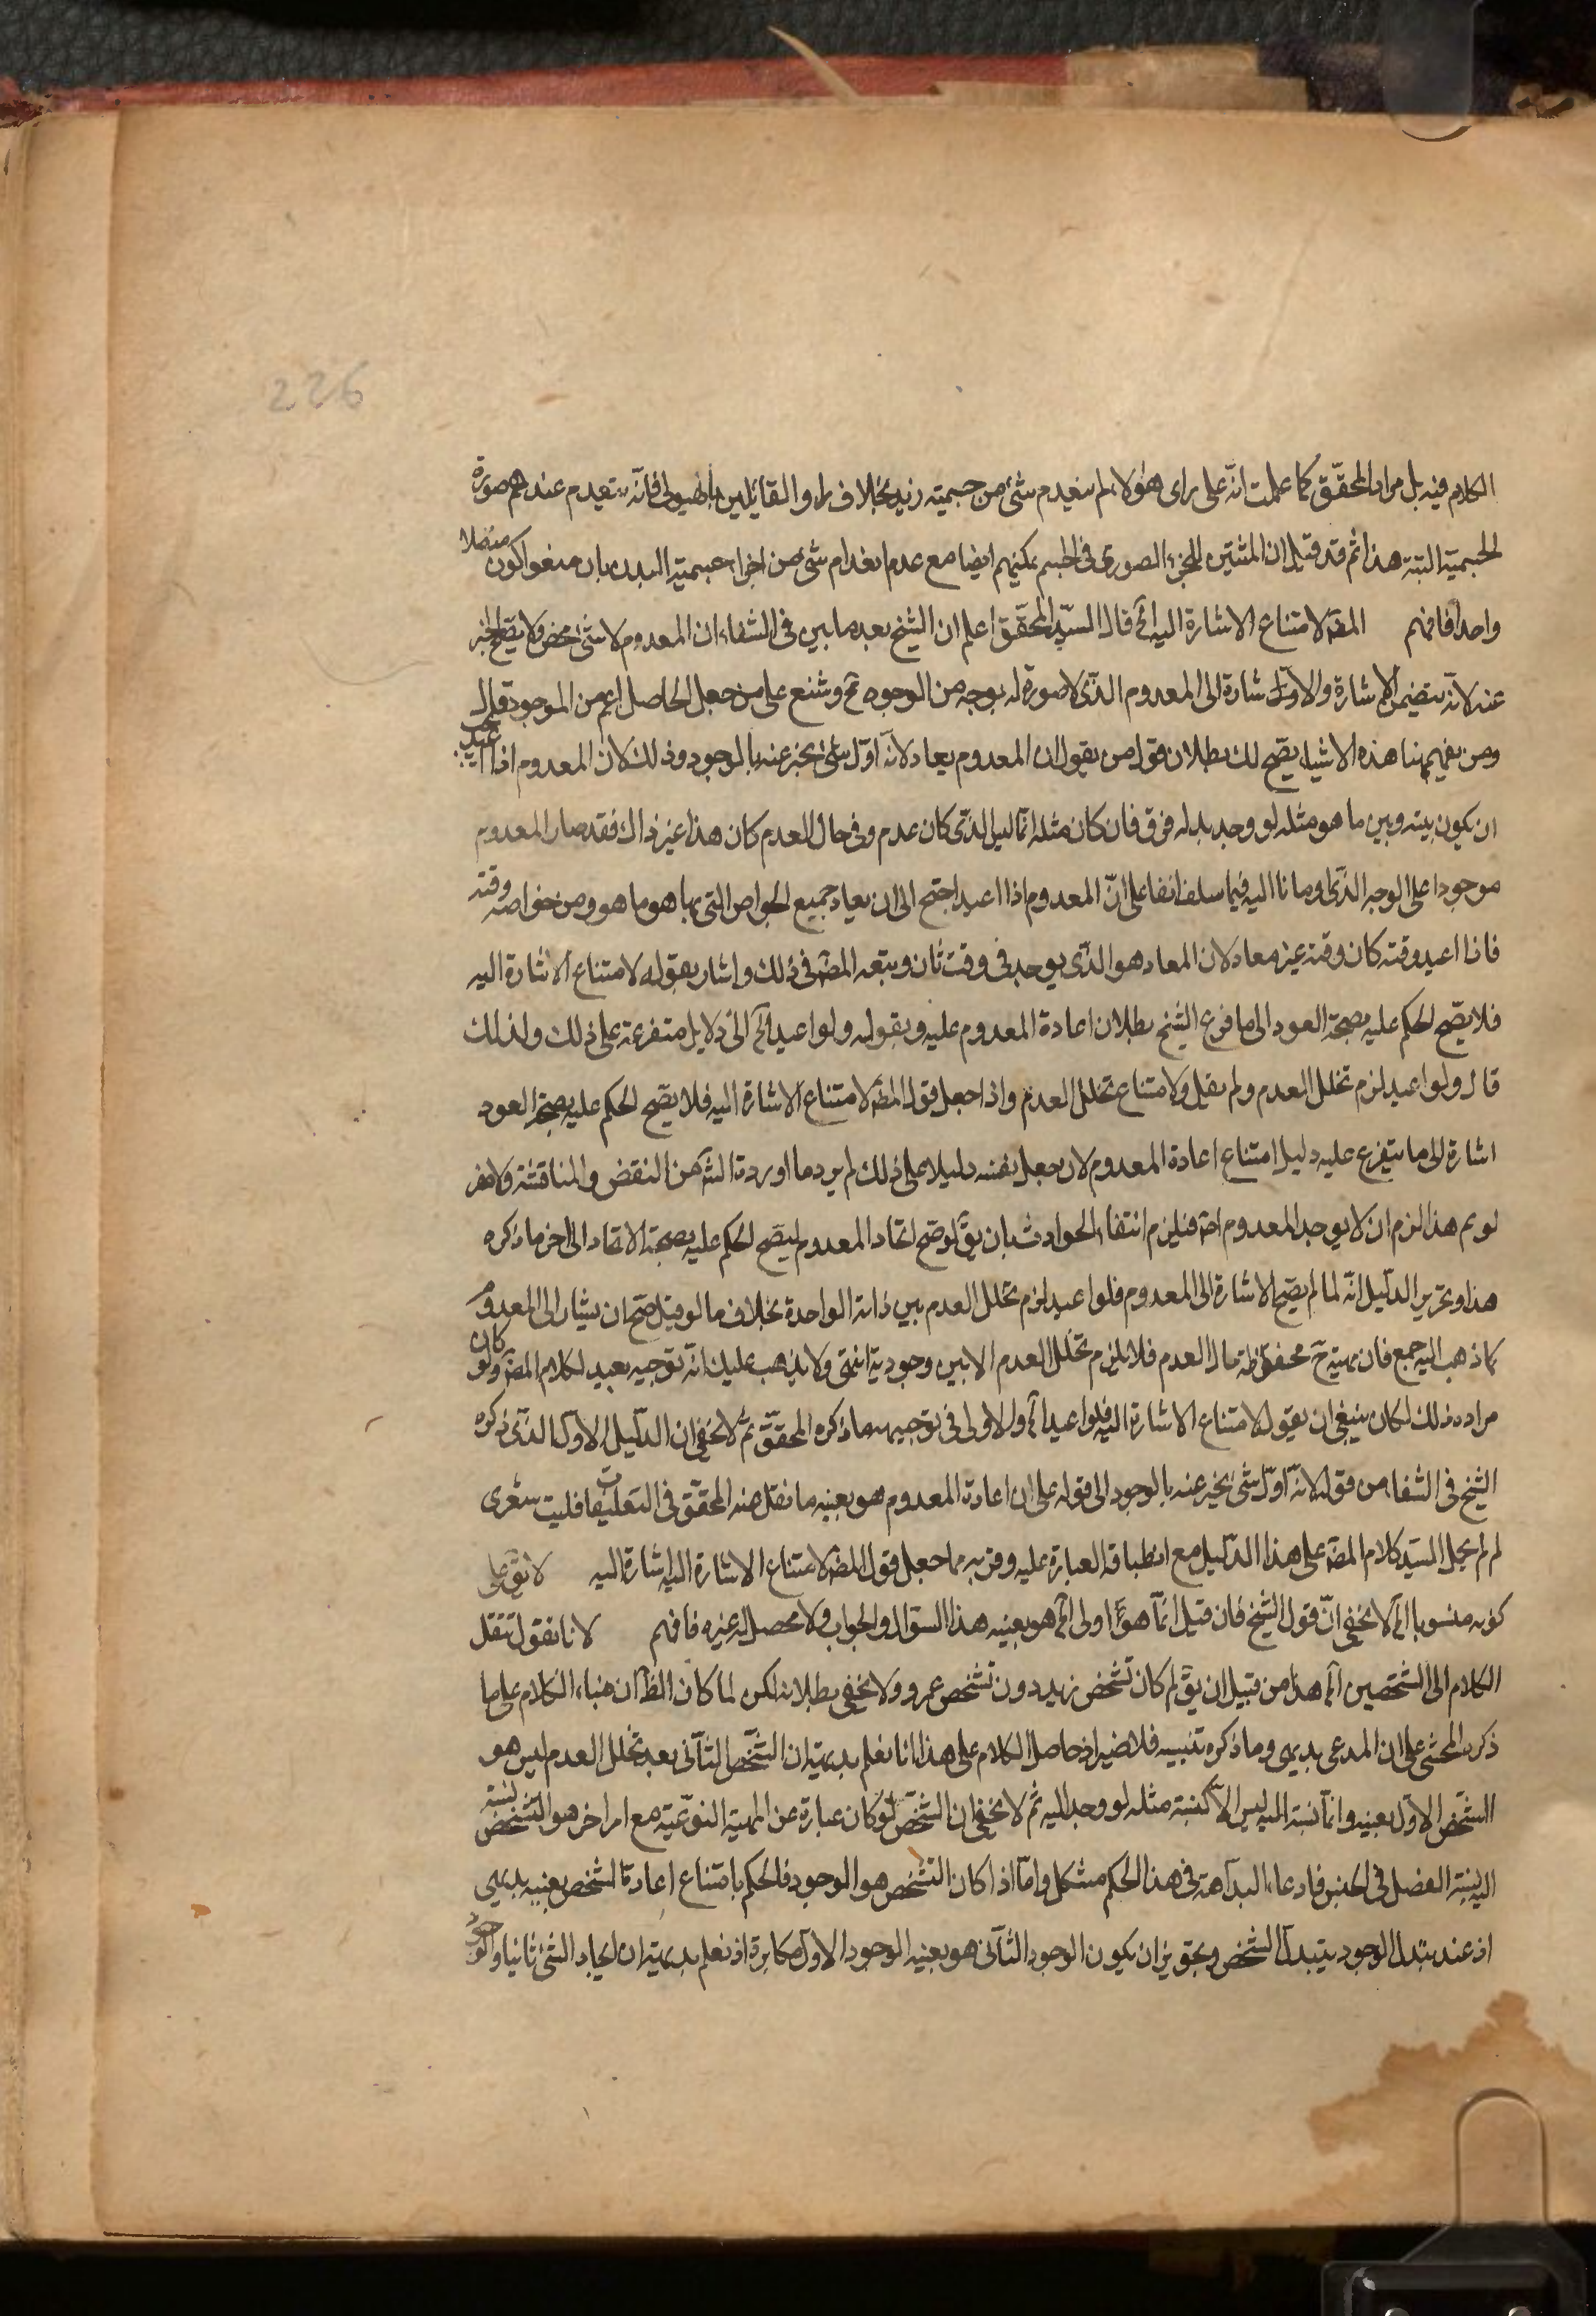 226
الكلام فيه بل مراد المحقّق كما علمت انه على راى هؤلاء لم ينعدم شئ من جسميته زيد بخلاف راى القائلين بالهيولى فانه ينعدم عندهم صورة
الجسمية البتة هذا ثم قد قيل ان المثبتين للجزء الصورى فى الجسم يمكنهم ايضا مع عدم انعدام شئ من اجزاء جسمية البدن بان منعوا كون متصلا
واحدا فافهم المصّ لامتناع الاشارة اليه آه قال السيّد المحقّق اعلم ان الشيخ بعد ما بين فى الشفاء ان المعدوم لاشئ محض ولا يصحّ الخبر
عنه لانه يتضمن الاشارة ولا اشارة الى المعدوم الذى لا صورة له بوجه من الوجوه ثم وشنع على من جعل الحاصل اعم من الموجود قال
ومن تفهيمنا هذه الاشياء يتضح لك بطلان قول من يقول ان المعدوم يعاد لانه اوّل شئ يخبر عنه بالوجود وذلك لان المعدوم اذا اعيد يجب
ان يكون بينه وبين ما هو مثله لو وجد بدله فرق فان كان مثله انما ليس الذى كان عدم وفى حال العدم كان هذا غير ذاك فقد صار المعدوم
موجودا على الوجه الذى اومانا اليه فيما سلف انفا على انّ المعدوم اذا اعيد احتيج الى ان يعاد جميع الخواص التى بها هو ما هو ومن خواصه وقته
فاذا اعيد وقته كان وقته غير معاد لان المعاد هو الذى يوجد فى وقت ثان وتبعه المصّ فى ذلك واشار بقوله لامتناع الاشارة اليه
فلا يصّح الحكم عليه بصحة العود الى ما فرع الشيخ بطلان اعادة المعدوم عليه وبقوله ولو اعيد آه الى دلايل متفرعة على ذلك ولذلك
قال ولو اعيد لزم تخلل العدم ولم يقل ولامتناع تخلل العدم واذا جعل قول المصّ لامتناع الاشارة اليه فلا يصّح الحكم عليه بصحة العود
اشارة الى ما يتفرع عليه دليل امتناع اعادة المعدوم لان يجعل بنفسه دليلا على ذلك لم يرد ما اورده الشّ من النقض والمناقشة
لو تم هذا لزم ان لا يوجد المعدوم فيلزم انتفاء الحوادث بان يقّ لو صح ايجاد المعدوم ليصّح الحكم عليه بصحة الايجاد الى اخر ما ذكره
هذا وتحرير الدّليل انّه لما لم يصّح الاشارة الى المعدوم فلو اعيد لزم تخلل العدم بين ذاته الواحدة بخلاف ما لو قيل صحّ ان يشار الى المعدوم
كما ذهب اليه جمع فان مهيته ح محفوظة حال العدم فلا يلزم تخلل العدم الا بين وجوديه انتهى ولا يذهب عليك انّه توجيه بعيد لكلام المصّ ولو كان
مراده ذلك لكان ينبغى ان يقول لامتناع الاشارة اليه فلو اعيد آه والاولى فى توجيهه ما ذكره المحقّق ثم لا يخفى ان الدّليل الاول الذى ذكره
الشيخ فى الشفاء من قوله لانه اوّل شئ يخبر عنه بالوجود الى قوله على ان اعادة المعدوم هو بعينه ما نقل عنه المحقّق فى التعليقات فليت شعرى
لم لم يحمل السيّد كلام المصّ على هذا الدّليل مع انطباق العبارة عليه وقربه مما جعل قول المصّ لامتناع الاشارة اليه اشارة اليه لا يقّ على
كونه منسوبا آه لا يخفى انّ قول الشيخ فان قيل انما هو اولى آه هو بعينه هذا السوال والجواب ولا محصل له غيره فافهم لانا نقول ننقل
الكلام الى الشّخصين آه هذا من قبيل ان يقّ لم كان تشخص زيد دون تشخص عمرو ولا يخفى بطلانه لكن لما كان الظّ ان بناء الكلام على ما
ذكره المحشى على ان المدعى بديهى وما ذكره تنبيه فلا ضير اذ حاصل الكلام على هذا انا نعلم بديهة ان الشّخص الثّانى بعد تخلل العدم ليس هو
الشّخص الاول بعينه وانما نسبة اليه ليس الا كنسبة مثله لو وجد اليه ثم لا يخفى ان الشّخص لو كان عبارة عن المهية النوعية مع امر اخر هو التّشخص نسبته
اليه نسبة الفصل فى الجنس فادعاء البداهة فى هذا الحكم مشكل وامّا اذا كان التّشخص هو الوجود فالحكم بامتناع اعادة الشخص بعينه بديهى
اذ عند تبدل الوجود يتبدل الشخص وتجويز ان يكون الوجود الثّانى هو بعينه الوجود الاول مكابرة اذ نعلم بديهة ان ايجاد الشئ ثانيا والوجود